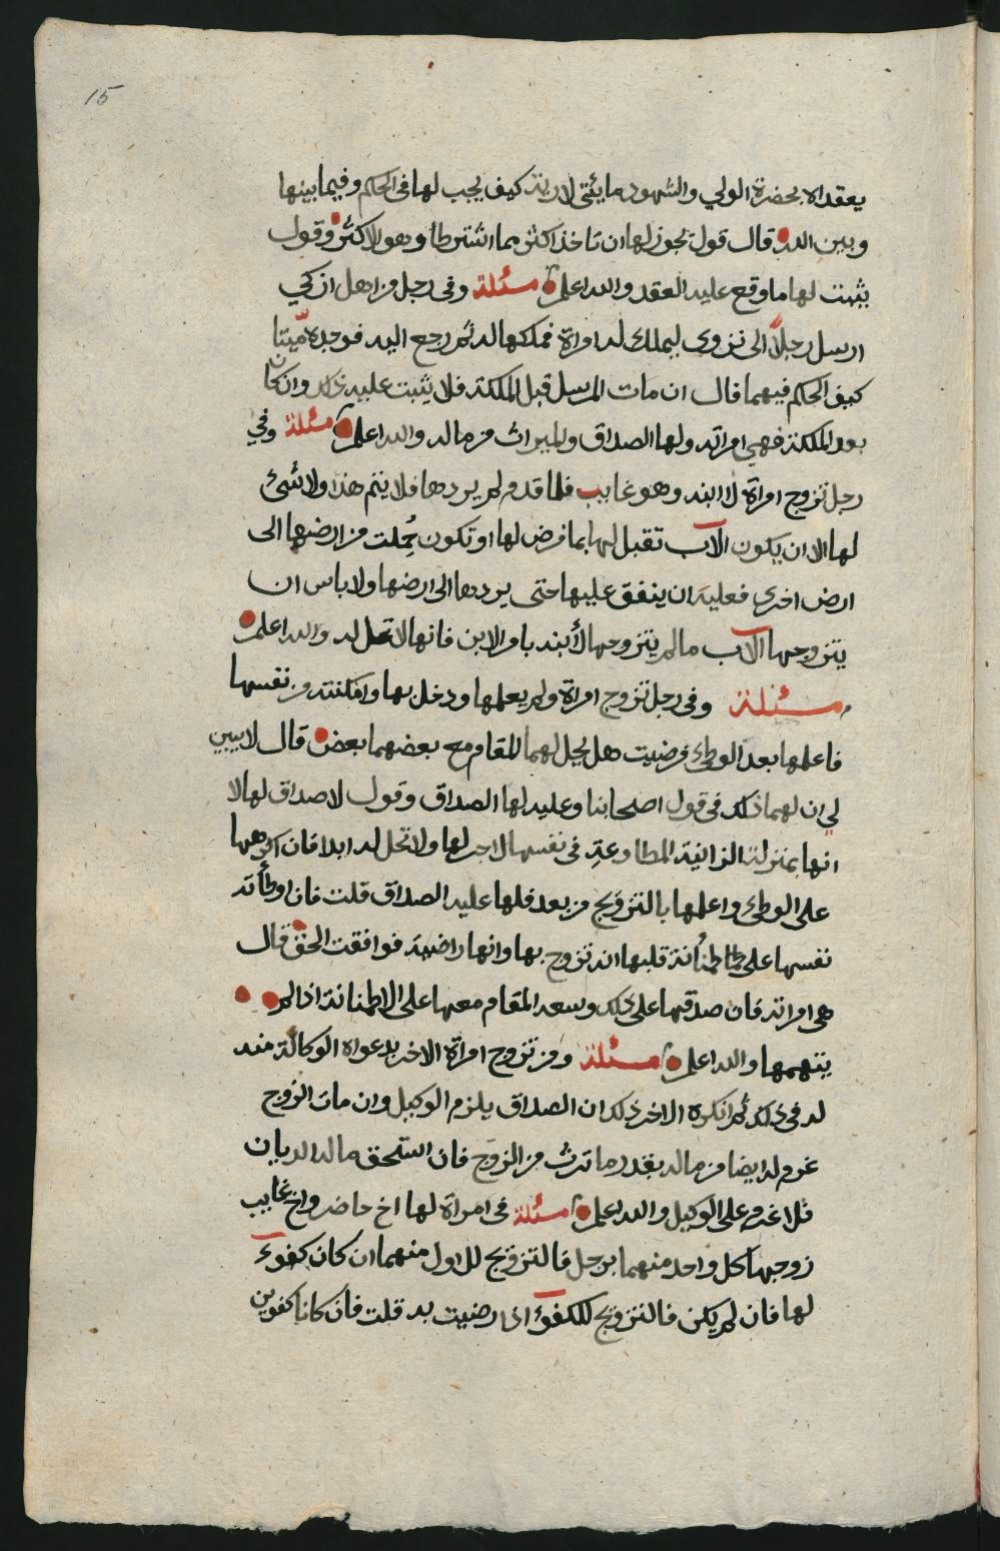 15
يعقداه الا بحضرة الولي والشهود مايتي لارية كيف يجب لها في الحكم وفيما بينها
وبين الله قال قول يجوز لها ان تاخذ اكثر مما اشترطا وهو الاكثر وقول
يثبت لها ما وقع عليه العقد والله اعلم مسئلة وفي رجل من اهل ازكي
ارسل رجلاً الى نزوى ليملك له امراة فملكها له ثم رجع اليه فوجده ميّتا
كيف الحكم فيهما قال ان مات المرسل قبل الملكة فلا يثبت عليه ذلك وان كان
بعد الملكة فهي امراته ولها الصداق والميراث من ماله والله اعلم مسئلة وفي
رجل تزوج امراة لابنه وهو غايب فلما قدم لم يردها فلا يتم هذا ولا شئ
لها الا ان يكون الآب تقبل لها بما فرض لها او تكون حُملت من ارضها الى
ارض اخرى فعليه ان ينفق عليها حتى يردها الى ارضها ولا باس ان
يتزوجها الآب مالم يتزوجها لأبنه بامر الابن فانها لا تحل له والله اعلم
مسئلة وفي رجل تزوج امراة ولم يعلمها ودخل بها وامكنته من نفسها
فاعلمها بعد الوطئ فرضيت هل يحل لهما المقام مع بعضهما بعض قال لا يبين
لي ان لهما ذلك في قول اصحابنا وعليه لها الصداق وقول لا صداق لها لا
انها بمنزلة الزانية المطاوعة في نفسها لا جر لها ولا تحل له ابدا فان اكرهها
على الوطئ واعلمها بالتزويج من بعد فلها عليه الصداق قلت فان اوطأته
نفسها على طمأنة قلبها انه تزوج بها وانها راضية فوافقت الحق قال
هي امراته فان صدقها على ذلك وسعه المقام معها على الاطمنانة اذا لم
يتهمها والله اعلم مسئلة ومن تزوج امراة الاخر بدعواه الوكالة منه
له في ذلك ثم انكره الاخر ذلك ان الصداق يلزم الوكيل وان مات الزوج
غرم له ايضا من ماله بقدر ما ترث من الزوج فان استحق ماله الديان
فلا غرم على الوكيل والله اعلم مسئلة في امراة لها اخ حاضر واخ غايب
زوجها كل واحد منهما برجل فالتزويج للاول منهما ان كان كفوء
لها فان لم يكن فالتزويج للكفوء اذا رضيت به قلت فان كانا كفوين